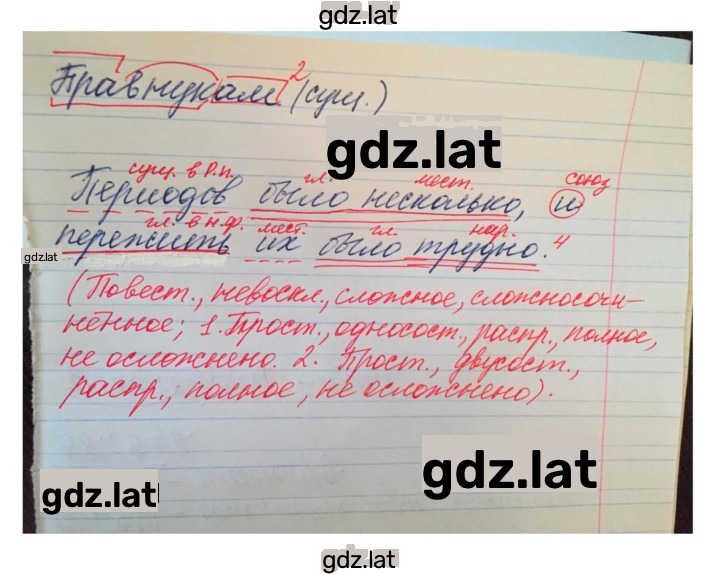 gdz.lat
2
Правнукам (сущ.)
gdz.lat
сущ. в Р.п. гл. мест. союз
Периодов было несколько, и
гл. в н.ф. мест. гл. нар.
пережить их было трудно. 4
gdz.lat
(Повест., невоскл., сложное, сложносочи-
нённое; 1. Прост., односост., распр., полное,
не осложнено. 2. Прост., двусост.,
распр., полное, не осложнено).
gdz.lat
gdz.lat
gdz.lat